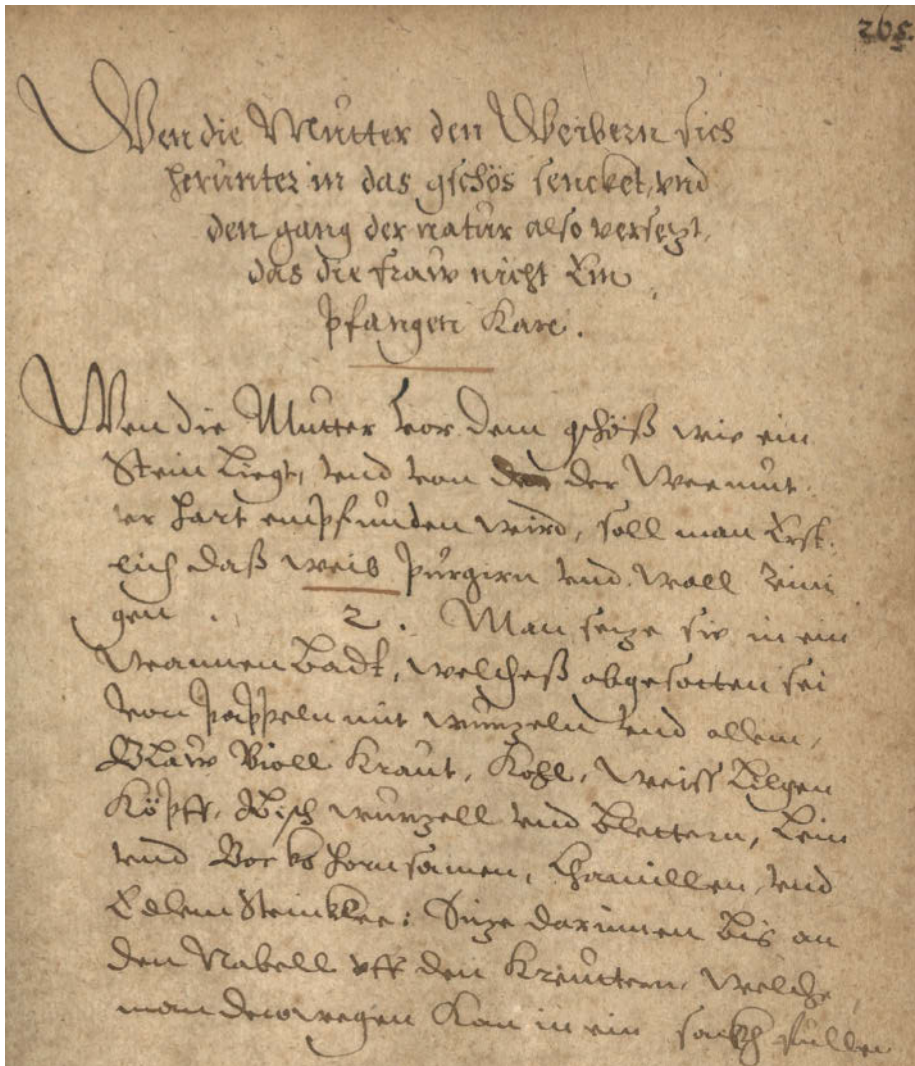 265.
Wen die Mutter den Weibern sich
herunter in das gschös sencket, vnd
den gang der natur also versezt,
das die fraw nicht Em
pfangen Kan.
Wen die Mutter vor dem gschöß wie ein
Stein Liegt, vnd von der
er hart empfunden wird, soll man Erst
lich daß weib purgirn vnd woll Reini
gen. 2. Man seze sie in ein
Wannen Badt, welcheß abgesotten sei
von pappeln mit wurzeln vnd allem,
Blaw Violl Kraut, Kohl, Weiss Lilgen
Köpff, Ibisch wurzell vnd Blettern, Lein
vnd Bocks hornsamen, Chamillen, vnd
Edlem Steinklee: Size darinnen bis an
den Nabell vff den Kreuttern, Welche
man deswegen Kan in ein sackh füllen